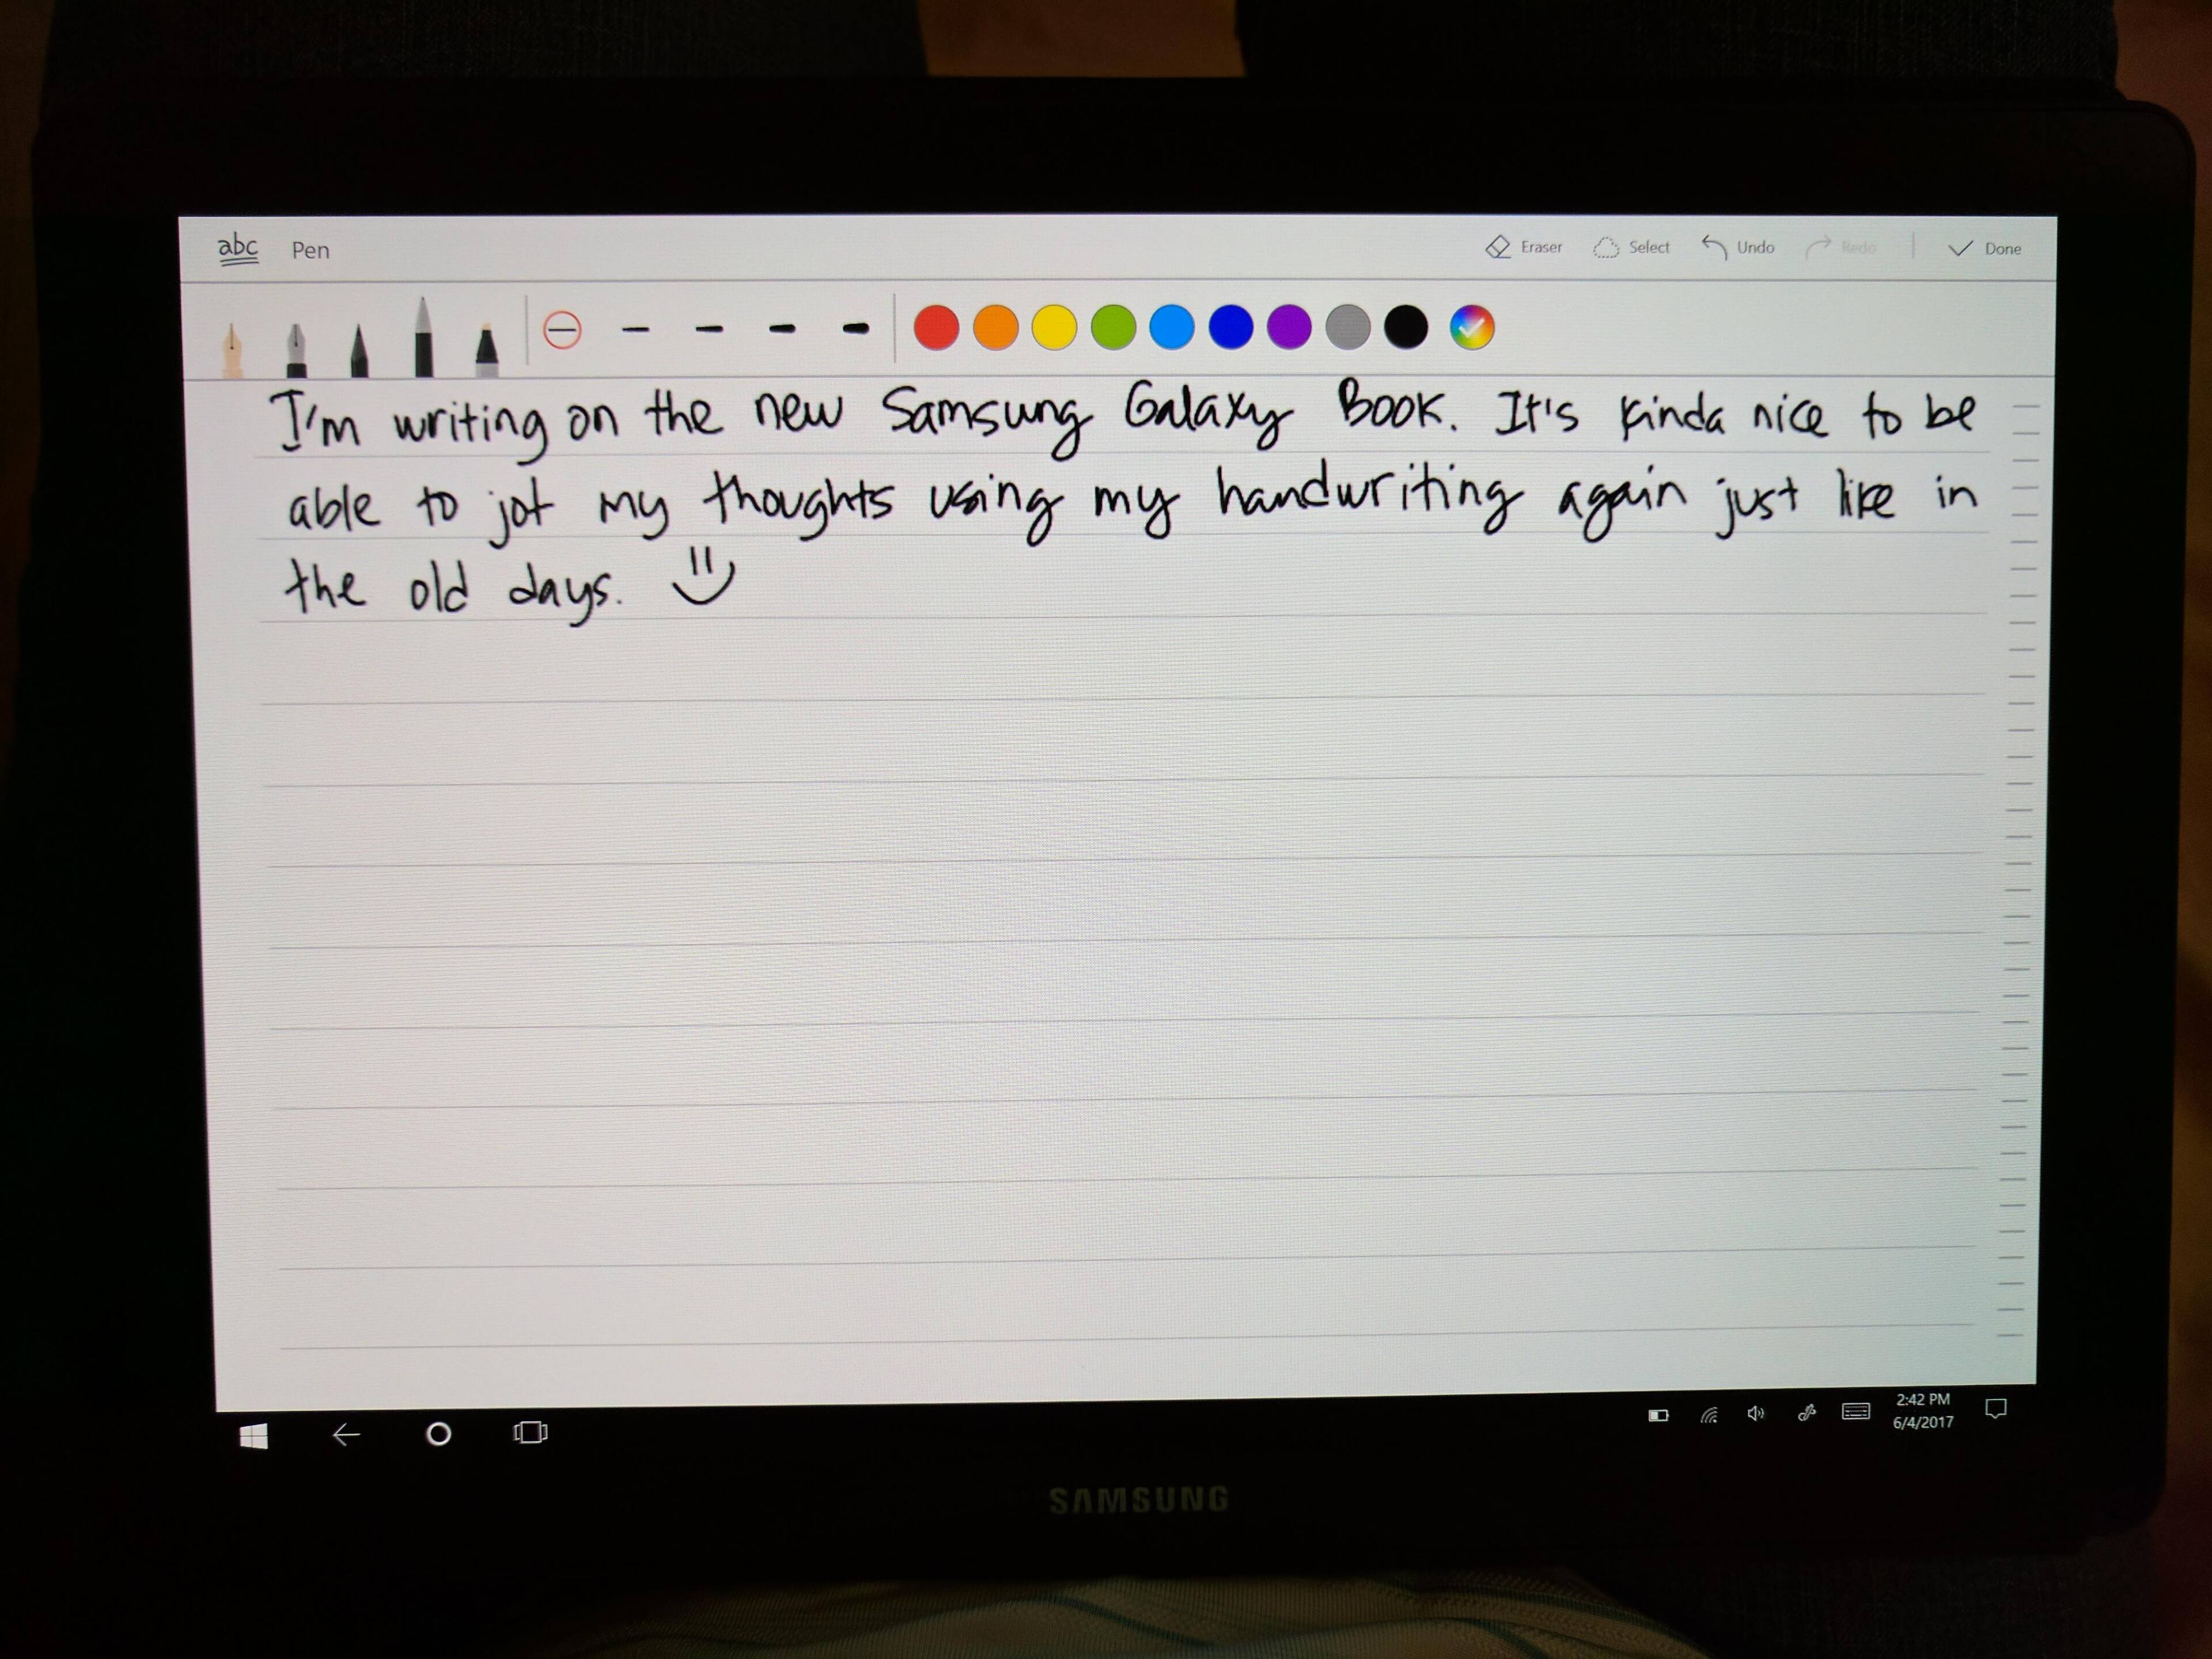 abc Pen Eraser Select Undo Redo Done
I'm writing on the new Samsung Galaxy Book. It's kinda nice to be
able to jot my thoughts using my handwriting again just like in
the old days.
2:42 PM
6/4/2017
SAMSUNG